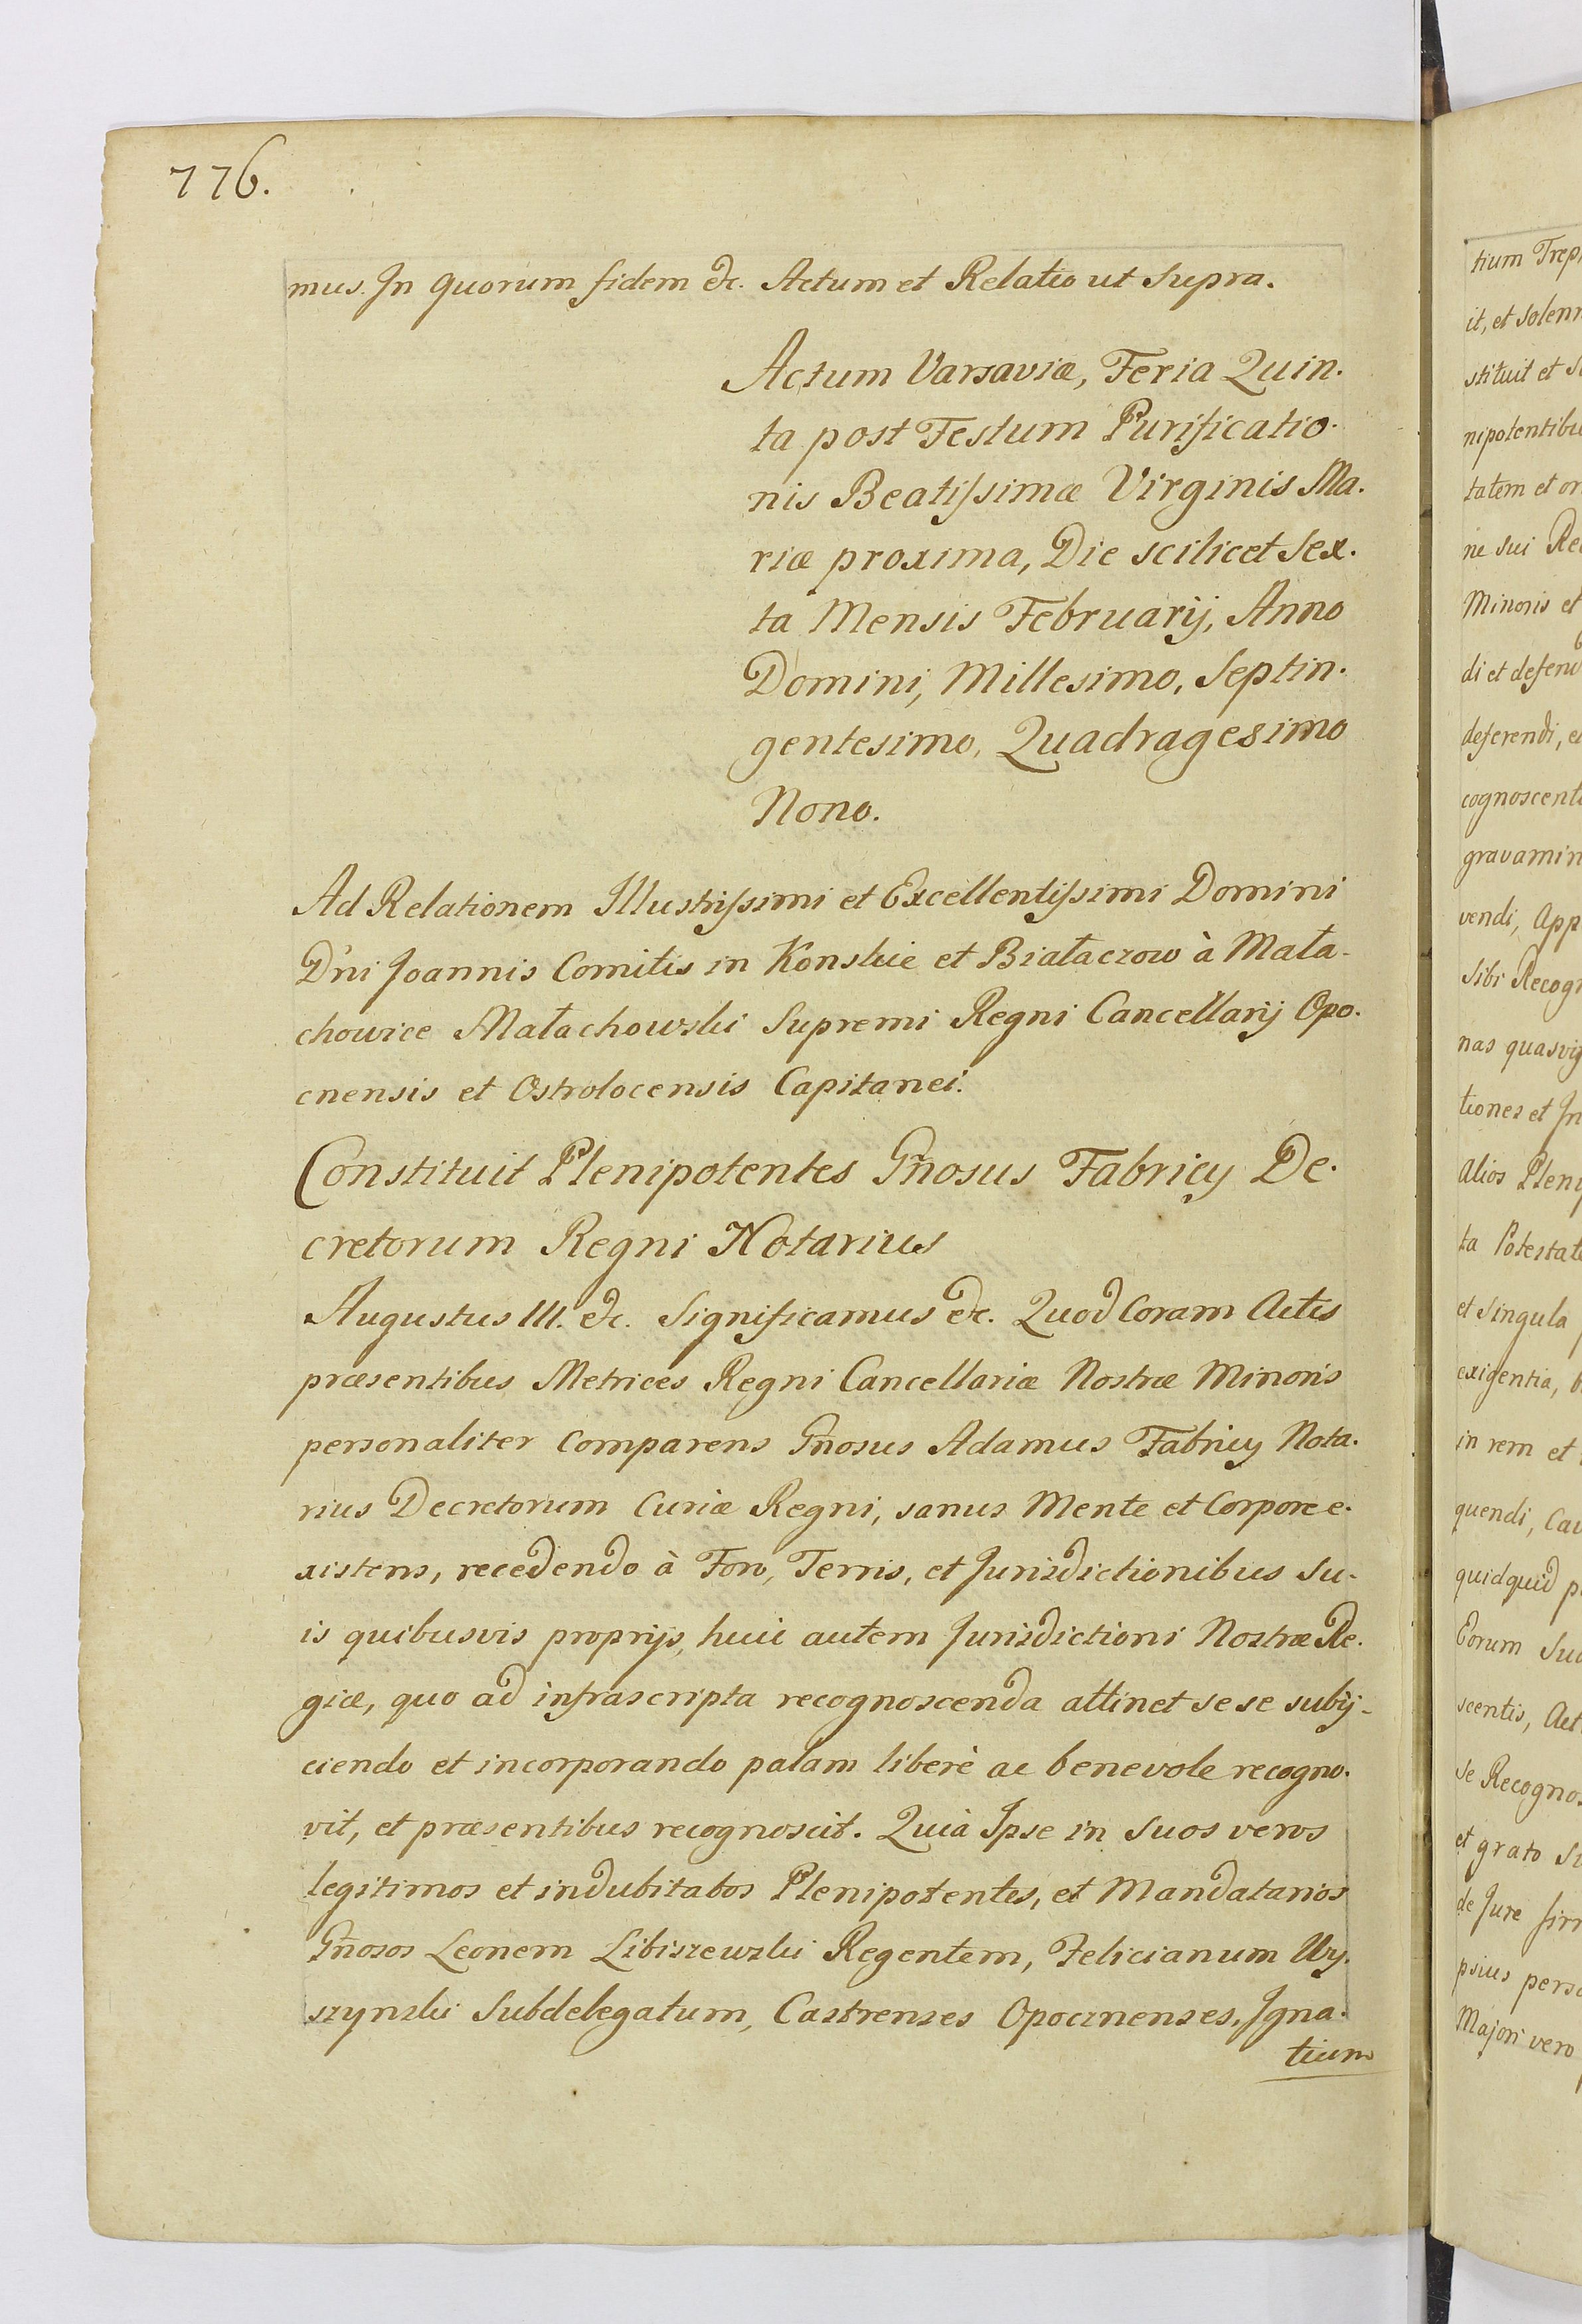 776.
mus. In quorum fidem &c. Actum et Relatio ut Supra.
Actum Varsaviæ, Feria Quin.
ta post Festum Purificatio.
nis Beatissimæ Virginis Ma.
riæ proxima, Die scilicet Sex.
ta Mensis Februarij, Anno
Domini, Millesimo, Septin.
gentesimo, Quadragesimo
Nono.
Ad Relationem Illustrissimi et Excellentissimi Domini
D'ni Joannis Comitis in Konskie et Białaczow à Mała-
chowice Małachowski Supremi Regni Cancellarij Opo.
cnensis et Ostrolocensis Capitanei.
Constituit Plenipotentes Gñosus Fabricy De.
cretorum Regni Notarius
Augustus III. &c. Significamus &c. Quod Coram Actis
præsentibus Metrices Regni Cancellariæ Nostræ Minoris
personaliter Comparens Gñosus Adamus Fabricy Nota.
rius Decretorum Curiæ Regni, sanus Mente et Corpore e.
xistens, recedendo à Foro, Terris, et Jurisdictionibus Su-
is quibusvis proprijs, huic autem Jurisdictioni Nostræ Re.
giæ, quo ad infrascripta recognoscenda attinet se se subij-
ciendo et incorporando palam liberè ac benevole recogno.
vit, et præsentibus recognoscit. Quià Ipse in Suos veros
legitimos et indubitatos Plenipotentes, et Mandatarios
Gñosos Leonem Libiszewski Regentem, Felicianum Wy.
szynski Subdelegatum, Castrenses Opocznenses, Igna.
tium
tium Trep
it, et Solenn
stituit et
nipotentibu
tatem et or
ne sui Re
Minoris et
di et defen
deferendi, e
cognoscent
gravamin
vendi, App
Sibi Recog
nas quasvis
tiones et In
alios Pleni
ta Potestat
et Singula
exigentia,
in rem et
quendi, Cau
quidquid p
Eorum Su
scentis, Act
se Recogno
et grato
de Jure fir
psius pers
Majori vero